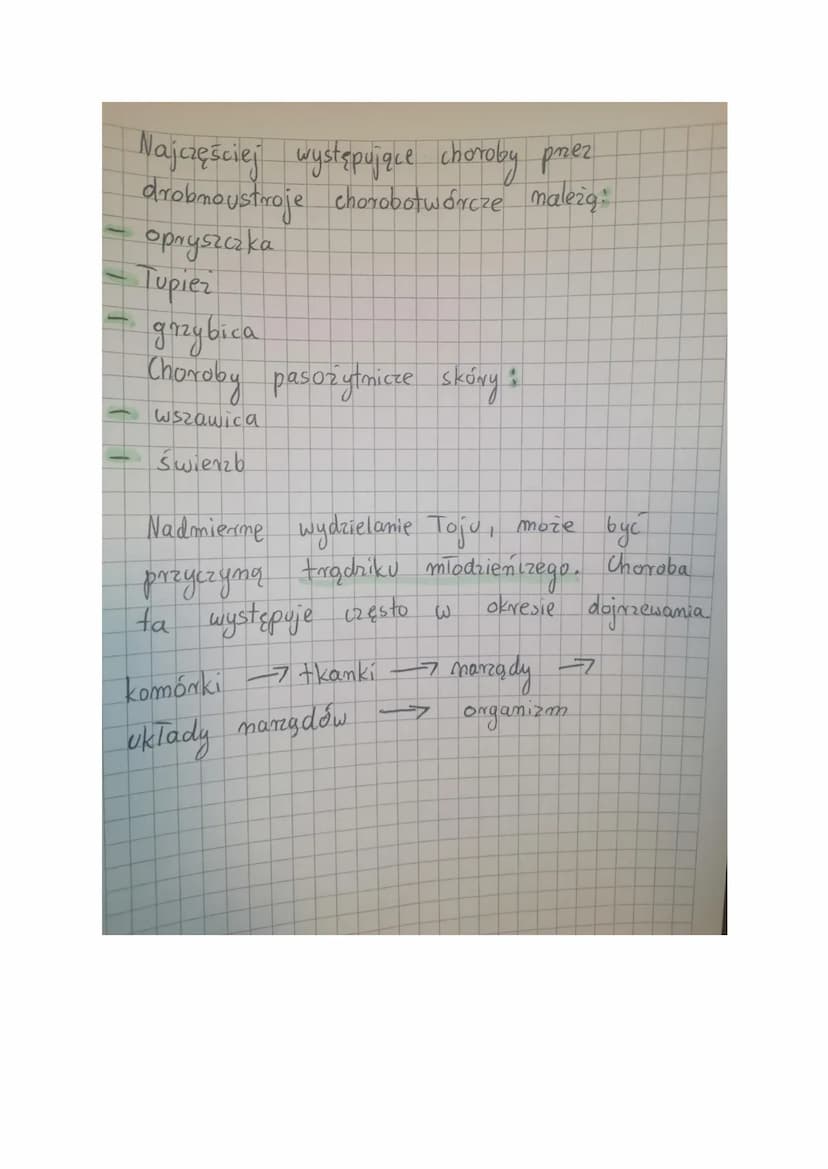 Najczęściej występujące choroby przez
drobnoustroje chorobotwórcze należą:
- opryszczka
- Łupież
- grzybica
Choroby pasożytnicze skóry:
- wszawica
- świerzb
Nadmierne wydzielanie Łoju, może być
przyczyną trądziku młodzieńczego. Choroba
ta występuje często w okresie dojrzewania
komórki → tkanki → narządy →
układy narządów → organizm